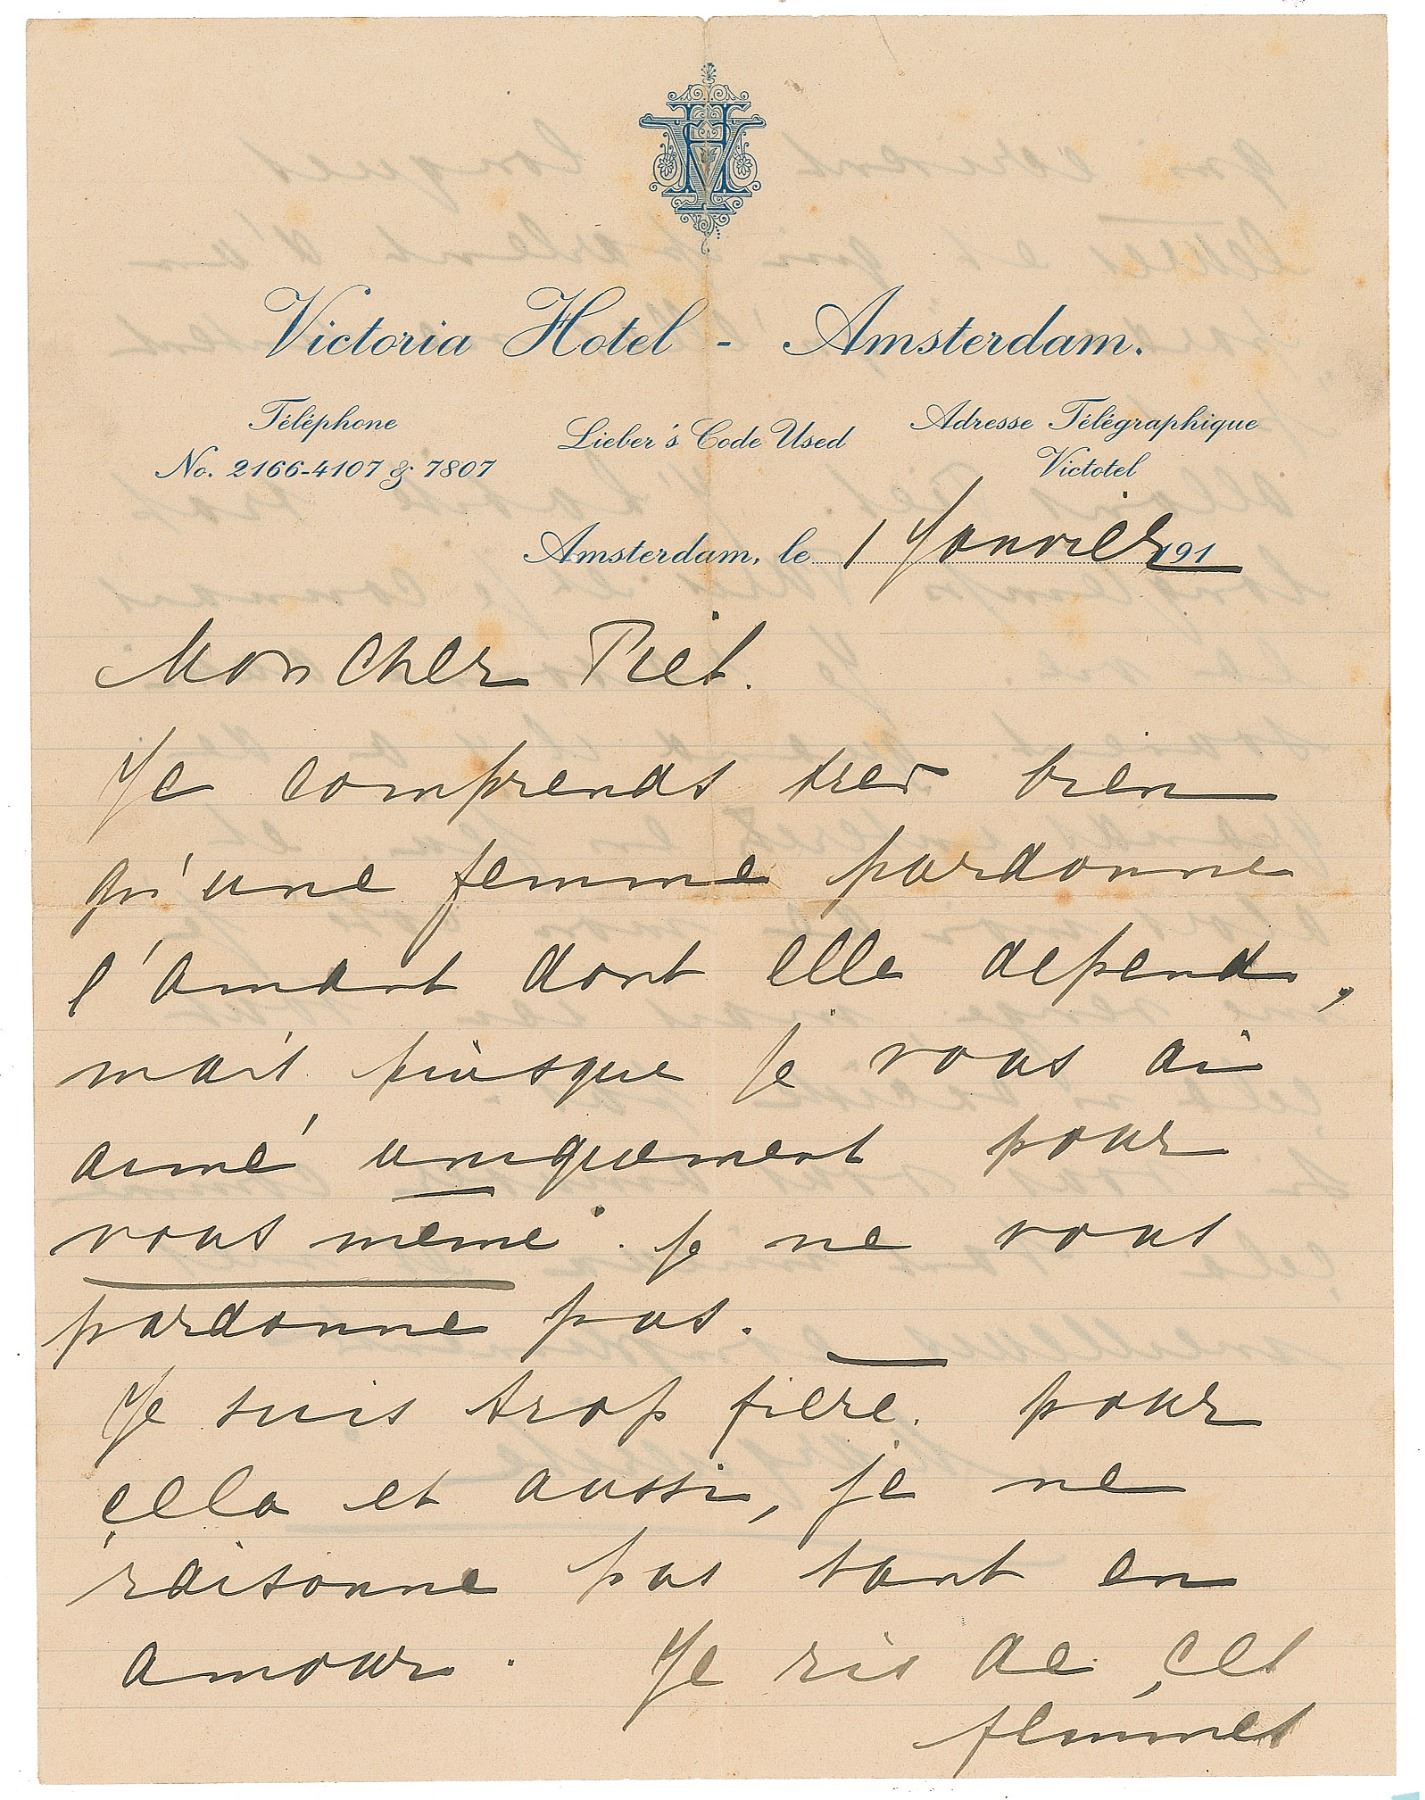 Victoria Hotel - Amsterdam.
Téléphone
No. 2166-4107 & 7807
Lieber's Code Used
Adresse Télégraphique
Victotel
Amsterdam, le 1 Janvier 191
Mon cher Piet.
Je comprends tres bien
qu'une femme pardonne
l'amant dont elle depend,
mais puisque je vous ai
aimé uniquement pour
vous même . je ne vous
pardonne pas.
Je suis trop fière. pour
çela et aussi, je ne
raisonne pas tant en
amour . Je ris de çes
femmes